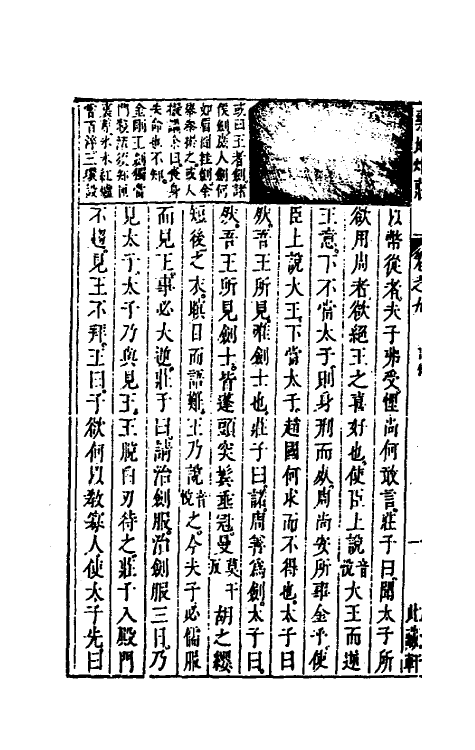 以幣從者夫子弗受悝尚何敢言莊子曰聞太子所
欲用周者欲絕王之喜好也使臣上說音悅大王而逆
王意下不當太子則身刑而死周尚安所事金乎使
臣上說大王下當太子趙國何求而不得也太子曰
然吾王所見唯劍士也莊子曰諾周善為劍太子曰
然吾王所見劍士皆蓬頭突鬢垂冠曼莫干反胡之纓
短後之衣瞋目而語難王乃說音悅之今夫子必儒服
而見王事必大逆莊子曰請治劍服治劍服三日乃
見太子太子乃與見王王脫白刃待之莊子入殿門
不趨見王不拜王曰子欲何以教寡人使太子先曰
或曰王者劍諸
侯劍庶人劍何
如眉間挂劍余
舉拳術之或人
擬議余曰喪身
失命也不知
金剛王劍
門
冰水紅爐
此藏軒